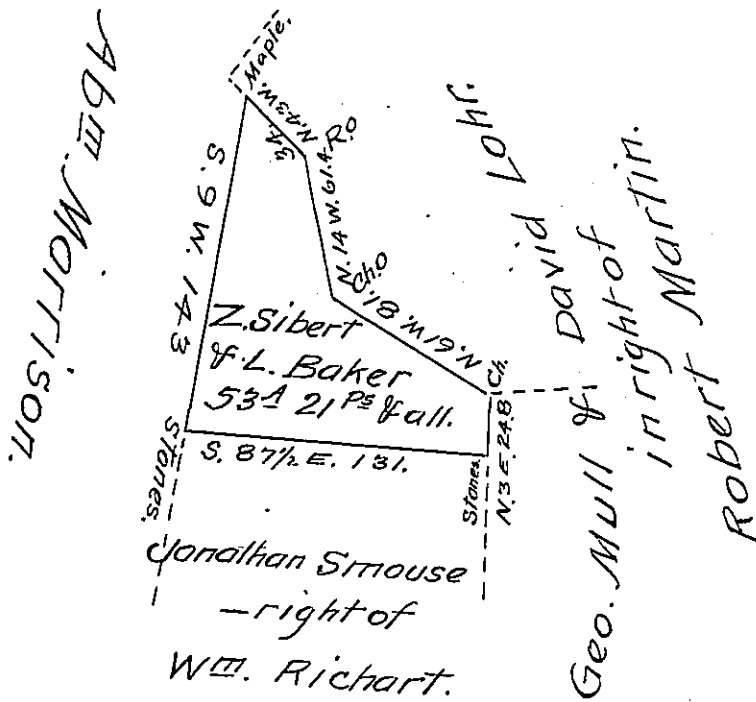 Abm. Morrison.
Maple.
N. 43 W.
34.
R.O
S. 9 W. 143
N. 14 W. 61.4
Ch.O
N. 61 W. 81.
Ch.
Z. Sibert
& L. Baker
53A 21 Ps & all.
Stones.
S. 87½ E. 131.
Stones.
N. 3 E. 24.8
Jonathan Smouse
—right of
Wm. Richart.
Geo. Mull & David Lohr.
in right of
Robert Martin.